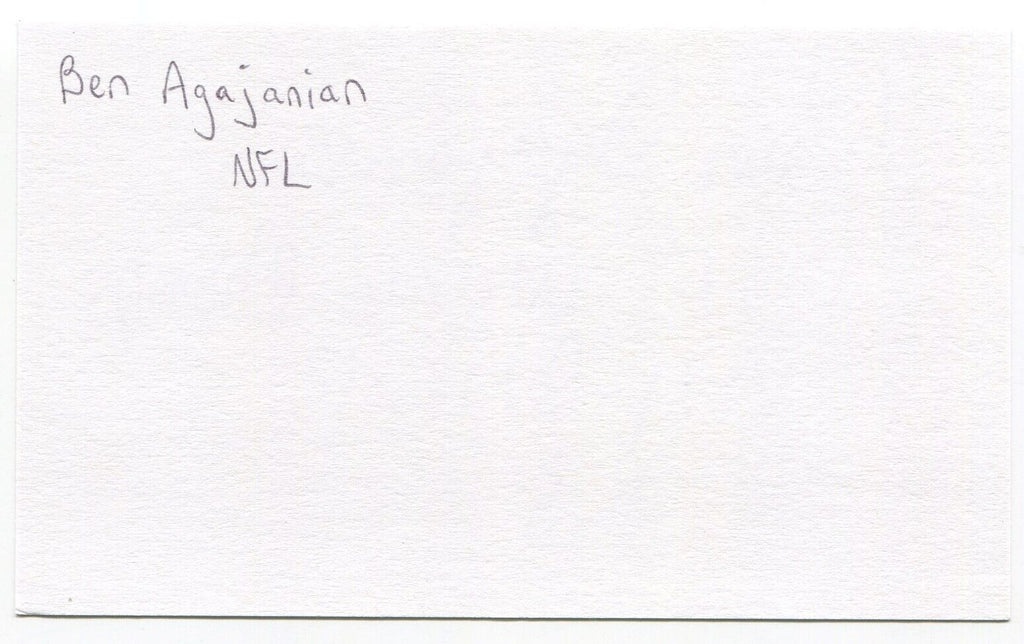 Ben Agajanian
NFL